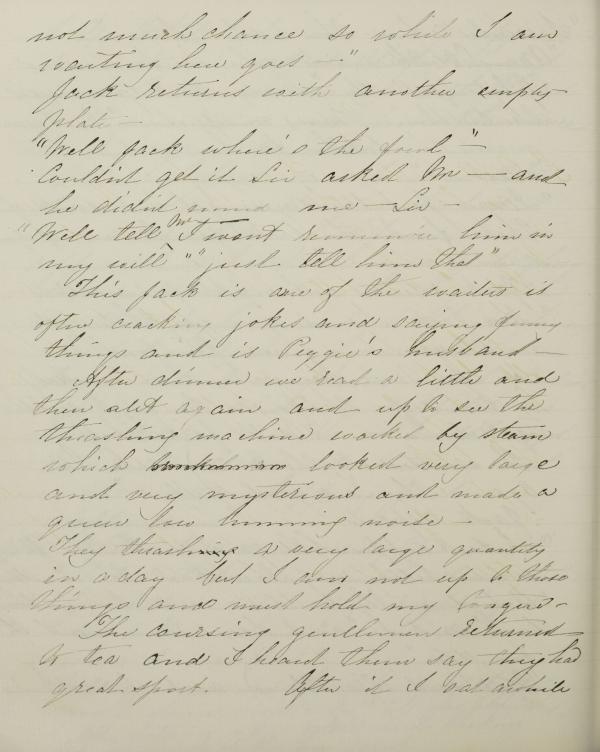 not much chance so while I am
waiting here goes —"
Jack returns with another empty
plate —
"Well Jack where's the fowl —"
Couldn't get it Sir asked Mr — and
he didn't mind me — Sir —
"Well tell Mr — I wont remember him in
my will" "just tell him that"
This Jack is one of the waiters is
often cracking jokes and saying funny
things and is Peggie's husband —
After dinner we read a little and
then out again and up to see the
thrashing machine worked by steam
which looked very large
and very mysterious and made a
queer low humming noise —
They thrash a very large quantity
in a day but I am not up to those
things and must hold my tongue —
The coursing gentlemen returned
to tea and I heard them say they had
great sport. After it I sat awhile